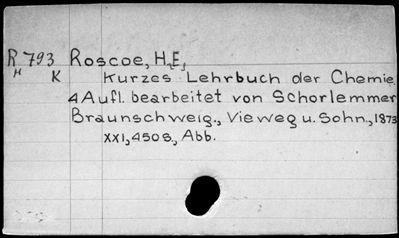 R 793 Roscoe, H.E,
H K Kurzes Lehrbuch der Chemie.
4 Aufl. bearbeitet von Schorlemmer
Braunschweig., Vieweg u. Sohn., 1873
XXI, 450 S., Abb.